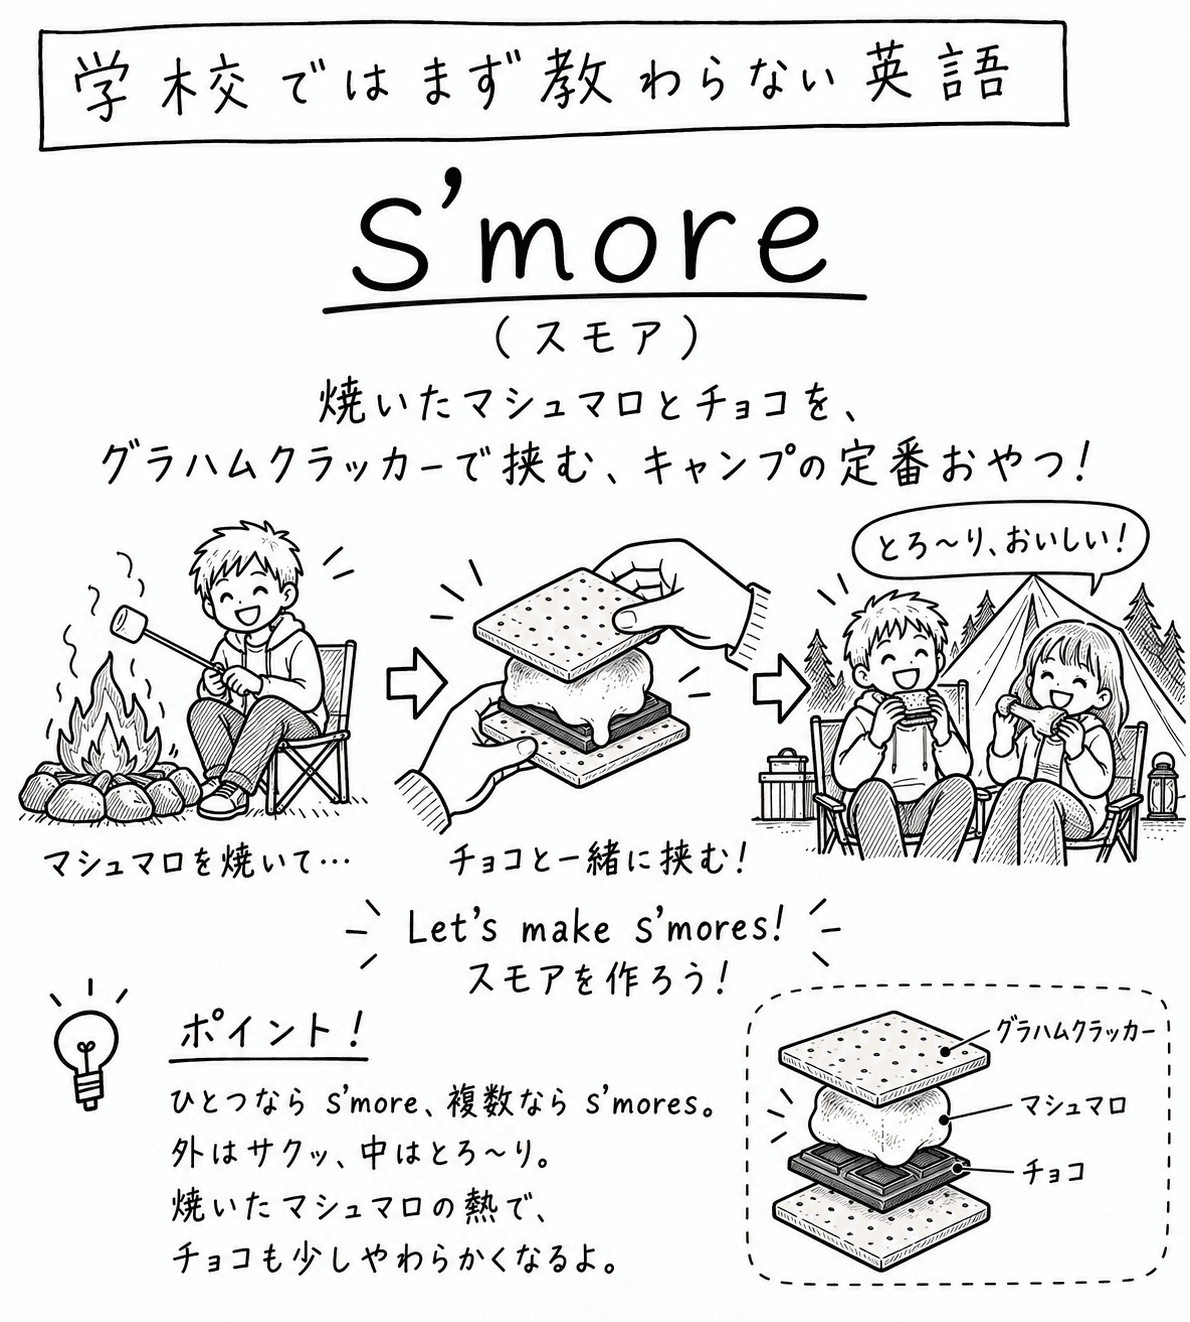 学校ではまず教わらない英語
s'more
(スモア)
焼いたマシュマロとチョコを、
グラハムクラッカーで挟む、キャンプの定番おやつ!
とろ〜り、おいしい!
マシュマロを焼いて…
チョコと一緒に挟む!
Let's make s'mores!
スモアを作ろう!
ポイント!
ひとつなら s'more、複数なら s'mores。
外はサクッ、中はとろ〜り。
焼いたマシュマロの熱で、
チョコも少しやわらかくなるよ。
グラハムクラッカー
マシュマロ
チョコ